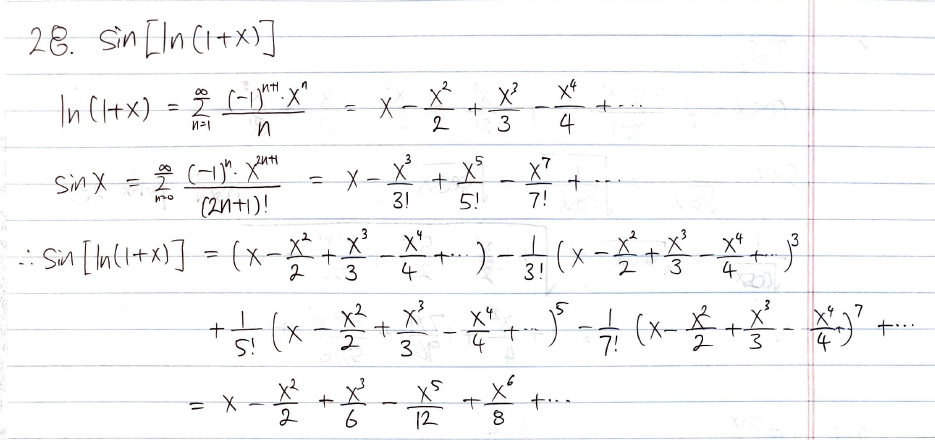 28. sin[ln(1+x)]
ln(1+x) = ∞Σn=1 (-1)^{n+1}·x^n / n = x - x²/2 + x³/3 - x⁴/4 + ···
sin x = ∞Σn=0 (-1)^n·x^{2n+1} / (2n+1)! = x - x³/3! + x⁵/5! - x⁷/7! + ···
∴ sin[ln(1+x)] = (x - x²/2 + x³/3 - x⁴/4 + ···) - 1/3! (x - x²/2 + x³/3 - x⁴/4 + ···)³
+ 1/5! (x - x²/2 + x³/3 - x⁴/4 + ···)⁵ - 1/7! (x - x²/2 + x³/3 - x⁴/4 +)⁷ + ···
= x - x²/2 + x³/6 - x⁵/12 + x⁶/8 + ···